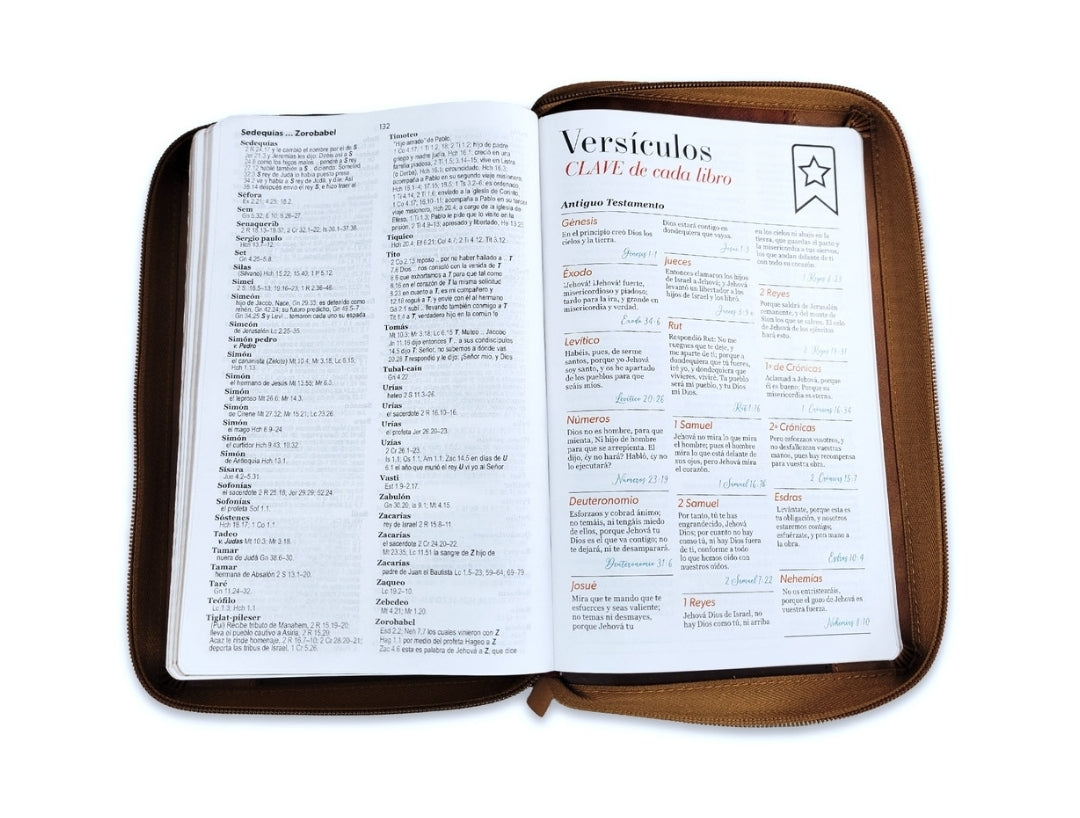 Sedequías ... Zorobabel
132
Sedequías
2 R 24.17 y le cambió el nombre por el de S
Séfora
Ex 2.21; 4.25; 18.2.
Sem
Gn 5.32; 6.10; 9.26-27.
Senaquerib
2 R 18.13-19.37; 2 Cr 32.1-22; Is 36.1-37.38.
Sergio paulo
Hch 13.7-12.
Set
Gn 4.25-5.8.
Silas
(Silvano) Hch 15.22; 15.40; 1 P 5.12.
Simei
2 S 16.5-13; 19.16-23; 1 R 2.36-46.
Simeón
hijo de Jacob, Nace, Gn 29.33; es detenido como
rehén, Gn 42.24; su futuro predicho, Gn 49.5-7
Gn 34.25 S y Leví... tomaron cada uno su espada
Simeón
de Jerusalén Lc 2.25-35.
Simón pedro
v. Pedro.
Simón
el cananista (Zelote) Mt 10.4; Mr 3.18; Lc 6.15;
Hch 1.13.
Simón
el hermano de Jesús Mt 13.55; Mr 6.3.
Simón
el leproso Mt 26.6; Mr 14.3.
Simón
de Cirene Mt 27.32; Mr 15.21; Lc 23.26.
Simón
el mago Hch 8.9-24.
Simón
el curtidor Hch 9.43; 10.32.
Simón
de Antioquía Hch 13.1.
Sísara
Jue 4.2-5.31.
Sofonías
el sacerdote 2 R 25.18; Jer 29.29; 52.24.
Sofonías
el profeta Sof 1.1.
Sóstenes
Hch 18.17; 1 Co 1.1.
Tadeo
v. Judas Mt 10.3; Mr 3.18.
Tamar
nuera de Judá Gn 38.6-30.
Tamar
hermana de Absalón 2 S 13.1-20.
Taré
Gn 11.24-32.
Teófilo
Lc 1.3; Hch 1.1
Tiglat-pileser
(Pul) Recibe tributo de Manahem, 2 R 15.19-20;
lleva al pueblo cautivo a Asiria, 2 R 15.29;
Acaz le rinde homenaje, 2 R 16.7-10; 2 Cr 28.20-21;
deporta las tribus de Israel, 1 Cr 5.26.
Timoteo
"Hijo amado" de Pablo,
1 Co 4.17; 1 Ti 1.2, 18; 2 Ti 1.2; hijo de padre
griego y madre judía, Hch 16.1; creció en una
familia piadosa, 2 Ti 1.5; 3.14-15; vive en Listra
Tíquico
Hch 20.4; Ef 6.21; Col 4.7; 2 Ti 4.12; Tit 3.12.
Tito
2 Co 2.13 reposo... por no haber hallado a... T
7.6 Dios... nos consoló con la venida de T
8.6 que exhortamos a T para que tal como
8.16 en el corazón de T la misma solicitud
8.23 en cuanto a T, es mi compañero y
12.18 rogué a T, y envié con él al hermano
Gá 2.1 subí... llevando también conmigo a T
Tit 1.4 a T, verdadero hijo en la común fe
Tomás
Mt 10.3; Mr 3.18; Lc 6.15 T, Mateo... Jacobo
Jn 11.16 dijo entonces T... a sus condiscípulos
14.5 dijo T: Señor, no sabemos a dónde vas
20.28 T respondió y le dijo: ¡Señor mío, y Dios
Tubal-caín
Gn 4.22.
Urías
heteo 2 S 11.3-26.
Urías
el sacerdote 2 R 16.10-16.
Urías
el profeta Jer 26.20-23.
Uzías
2 Cr 26.1-23.
Is 1.1; Os 1.1; Am 1.1; Zac 14.5 en días de U
6.1 el año que murió el rey U vi yo al Señor
Vasti
Est 1.9-2.17.
Zabulón
Gn 30.20; Is 9.1; Mt 4.15.
Zacarías
rey de Israel 2 R 15.8-11.
Zacarías
el sacerdote 2 Cr 24.20-22.
Mt 23.35; Lc 11.51 la sangre de Z hijo de
Zacarías
padre de Juan el Bautista Lc 1.5-23; 59-64; 69-79.
Zaqueo
Lc 19.2-10.
Zebedeo
Mt 4.21; Mr 1.20.
Zorobabel
Esd 2.2; Neh 7.7 los cuales vinieron con Z
Hag 1.1 por medio del profeta Hageo a Z
Zac 4.6 esta es palabra de Jehová a Z, que dice
Versículos
CLAVE de cada libro
Antiguo Testamento
Génesis
En el principio creó Dios los
cielos y la tierra.
Génesis 1:1
Éxodo
¡Jehová! ¡Jehová! fuerte,
misericordioso y piadoso;
tardo para la ira, y grande en
misericordia y verdad.
Éxodo 34:6
Levítico
Habéis, pues, de serme
santos, porque yo Jehová
soy santo, y os he apartado
de los pueblos para que
seáis míos.
Levítico 20:26
Números
Dios no es hombre, para que
mienta, Ni hijo de hombre
para que se arrepienta. El
dijo, ¿y no hará? Habló, ¿y no
lo ejecutará?
Números 23:19
Deuteronomio
Esforzaos y cobrad ánimo;
no temáis, ni tengáis miedo
de ellos, porque Jehová tu
Dios es el que va contigo; no
te dejará, ni te desamparará.
Deuteronomio 31:6
Josué
Mira que te mando que te
esfuerces y seas valiente;
no temas ni desmayes,
porque Jehová tu
Dios estará contigo en
dondequiera que vayas.
Josué 1:9
Jueces
Entonces clamaron los hijos
de Israel a Jehová; y Jehová
levantó un libertador a los
hijos de Israel y los libró.
Jueces 3:9a
Rut
Respondió Rut: No me
ruegues que te deje, y
me aparte de ti; porque a
dondequiera que tú fueres,
iré yo, y dondequiera que
vivieres, viviré. Tu pueblo
será mi pueblo, y tu Dios
mi Dios.
Rut 1:16
1 Samuel
Jehová no mira lo que mira
el hombre; pues el hombre
mira lo que está delante de
sus ojos, pero Jehová mira
el corazón.
1 Samuel 16:7b
2 Samuel
Por tanto, tú te has
engrandecido, Jehová
Dios; por cuanto no hay
como tú, ni hay Dios fuera
de ti, conforme a todo
lo que hemos oído con
nuestros oídos.
2 Samuel 7:22
1 Reyes
Jehová Dios de Israel, no
hay Dios como tú, ni arriba
en los cielos ni abajo en la
tierra, que guardas el pacto y
la misericordia a tus siervos,
los que andan delante de ti
con todo su corazón.
1 Reyes 8:23
2 Reyes
Porque saldrá de Jerusalén
remanente, y del monte de
Sion los que se salven. El celo
de Jehová de los ejércitos
hará esto.
2 Reyes 19:31
1ª de Crónicas
Aclamad a Jehová, porque
él es bueno; Porque su
misericordia es eterna.
1 Crónicas 16:34
2ª Crónicas
Pero esforzaos vosotros, y
no desfallezcan vuestras
manos, pues hay recompensa
para vuestra obra.
2 Crónicas 15:7
Esdras
Levántate, porque esta es
tu obligación, y nosotros
estaremos contigo;
esfuérzate, y pon mano a
la obra.
Esdras 10:4
Nehemías
No os entristezcáis,
porque el gozo de Jehová es
vuestra fuerza.
Nehemías 8:10